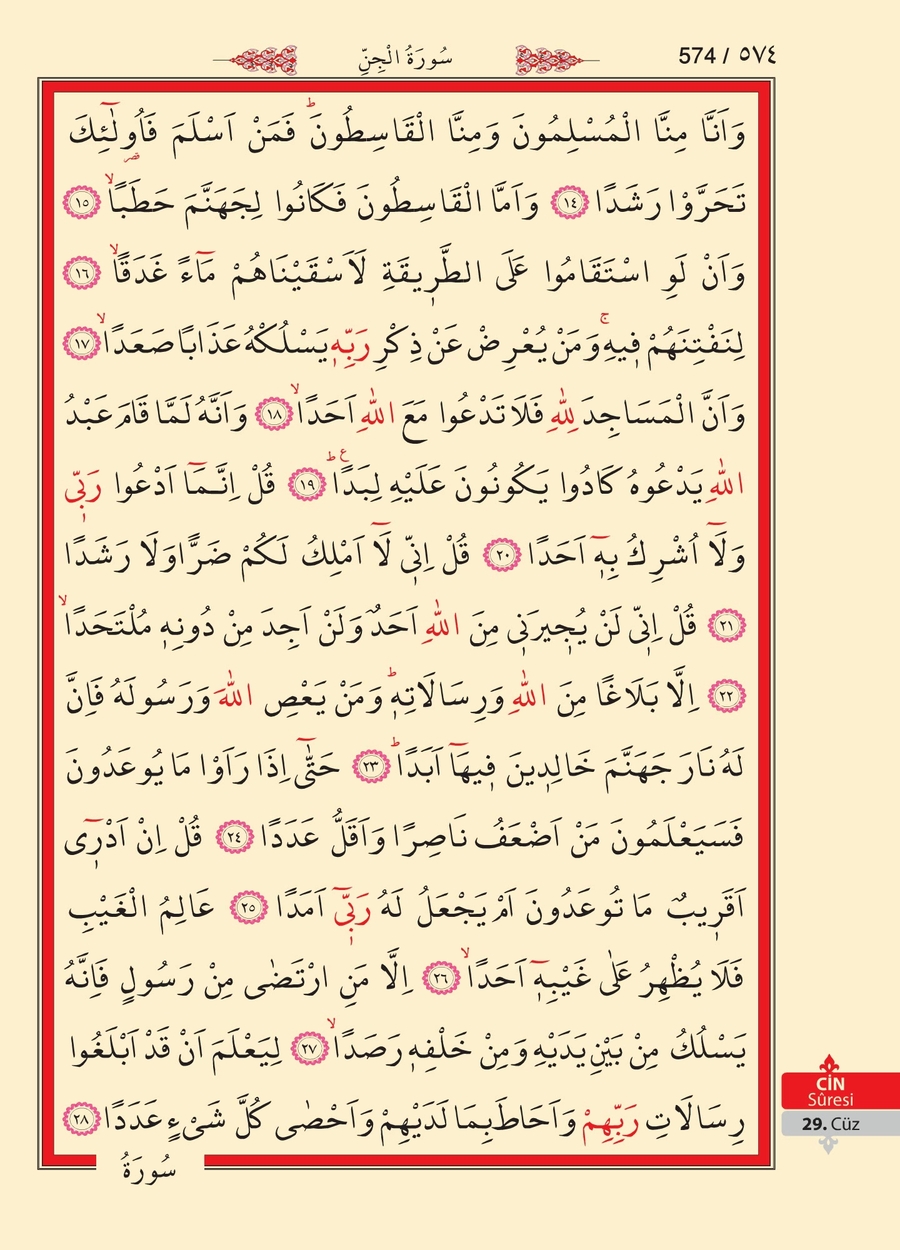 574 / ٥٧٤
سُورَةُ الْجِنِّ
وَاَنَّا مِنَّا الْمُسْلِمُونَ وَمِنَّا الْقَاسِطُونَۜ فَمَنْ اَسْلَمَ فَاُو۬لٰٓئِكَ
تَحَرَّوْا رَشَدًا ﴿١٤﴾ وَاَمَّا الْقَاسِطُونَ فَكَانُوا لِجَهَنَّمَ حَطَبًاۙ ﴿١٥﴾
وَاَنْ لَوِ اسْتَقَامُوا عَلَى الطَّر۪يقَةِ لَاَسْقَيْنَاهُمْ مَٓاءً غَدَقًاۙ ﴿١٦﴾
لِنَفْتِنَهُمْ ف۪يهِۚ وَمَنْ يُعْرِضْ عَنْ ذِكْرِ رَبِّه۪ يَسْلُكْهُ عَذَابًا صَعَدًاۙ ﴿١٧﴾
وَاَنَّ الْمَسَاجِدَ لِلّٰهِ فَلَا تَدْعُوا مَعَ اللّٰهِ اَحَدًاۙ ﴿١٨﴾ وَاَنَّهُ لَمَّا قَامَ عَبْدُ
اللّٰهِ يَدْعُوهُ كَادُوا يَكُونُونَ عَلَيْهِ لِبَدًاۜ ع ﴿١٩﴾ قُلْ اِنَّمَٓا اَدْعُوا رَبّ۪ي
وَلَٓا اُشْرِكُ بِه۪ٓ اَحَدًا ﴿٢٠﴾ قُلْ اِنّ۪ي لَٓا اَمْلِكُ لَكُمْ ضَرًّا وَلَا رَشَدًا
﴿٢١﴾ قُلْ اِنّ۪ي لَنْ يُج۪يرَن۪ي مِنَ اللّٰهِ اَحَدٌ وَلَنْ اَجِدَ مِنْ دُونِه۪ مُلْتَحَدًاۙ
﴿٢٢﴾ اِلَّا بَلَاغًا مِنَ اللّٰهِ وَرِسَالَاتِه۪ۜ وَمَنْ يَعْصِ اللّٰهَ وَرَسُولَهُ فَاِنَّ
لَهُ نَارَ جَهَنَّمَ خَالِد۪ينَ ف۪يهَٓا اَبَدًاۜ ﴿٢٣﴾ حَتّٰٓى اِذَا رَاَوْا مَا يُوعَدُونَ
فَسَيَعْلَمُونَ مَنْ اَضْعَفُ نَاصِرًا وَاَقَلُّ عَدَدًا ﴿٢٤﴾ قُلْ اِنْ اَدْر۪ٓي
اَقَر۪يبٌ مَا تُوعَدُونَ اَمْ يَجْعَلُ لَهُ رَبّ۪ٓي اَمَدًا ﴿٢٥﴾ عَالِمُ الْغَيْبِ
فَلَا يُظْهِرُ عَلٰى غَيْبِه۪ٓ اَحَدًاۙ ﴿٢٦﴾ اِلَّا مَنِ ارْتَضٰى مِنْ رَسُولٍ فَاِنَّهُ
يَسْلُكُ مِنْ بَيْنِ يَدَيْهِ وَمِنْ خَلْفِه۪ رَصَدًاۙ ﴿٢٧﴾ لِيَعْلَمَ اَنْ قَدْ اَبْلَغُوا
رِسَالَاتِ رَبِّهِمْ وَاَحَاطَ بِمَا لَدَيْهِمْ وَاَحْصٰى كُلَّ شَيْءٍ عَدَدًا ﴿٢٨﴾
سُورَةُ
CİN
Sûresi
29. Cüz